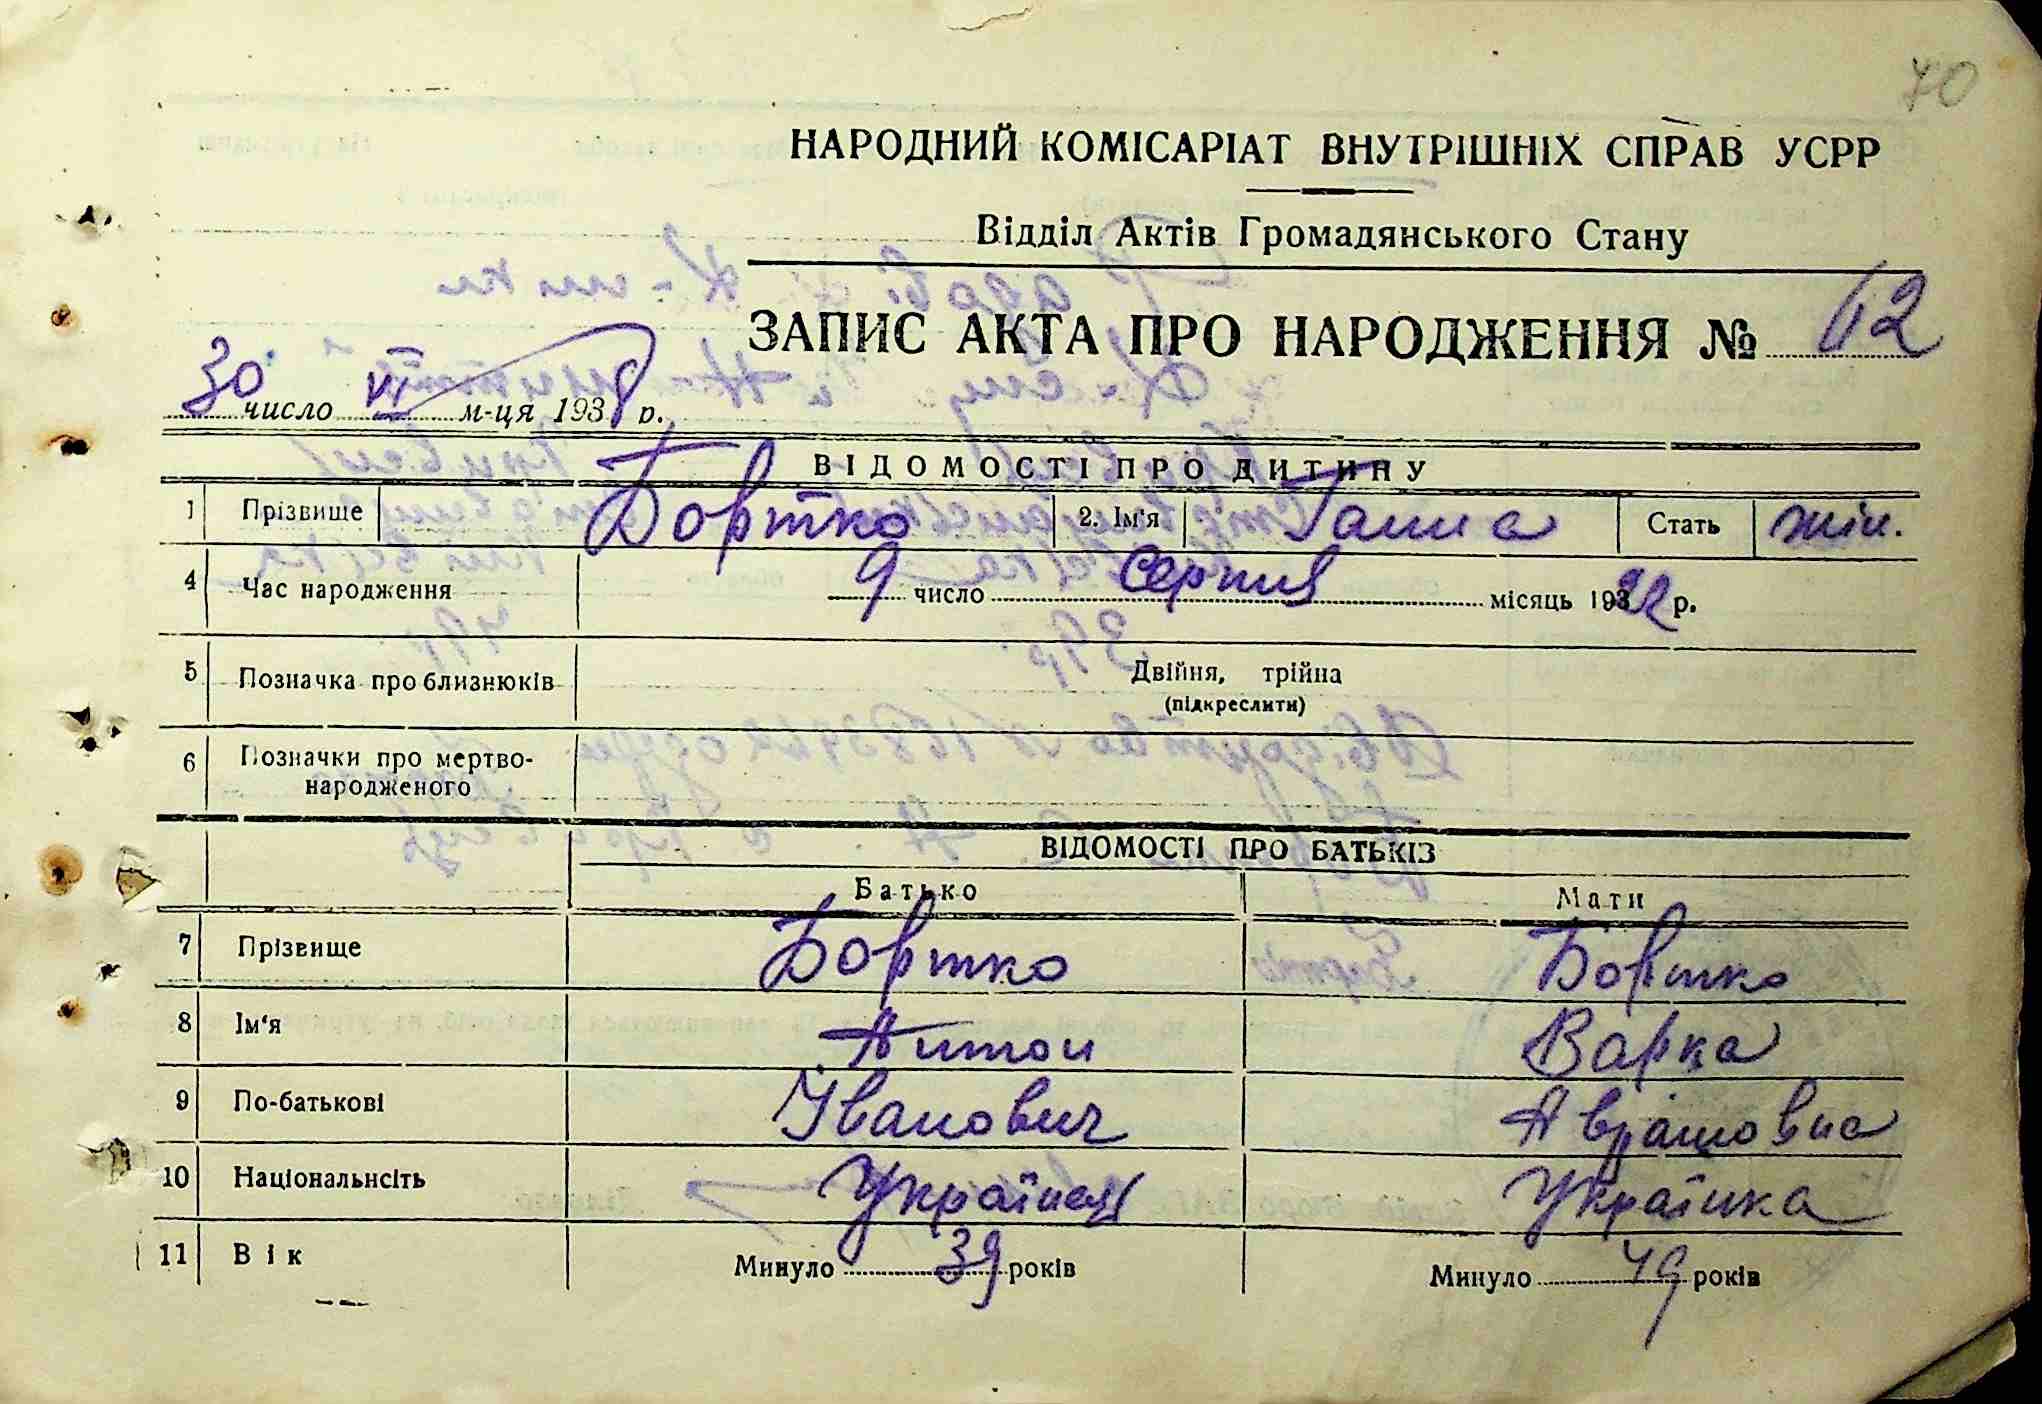 70
НАРОДНИЙ КОМІСАРІАТ ВНУТРІШНІХ СПРАВ УСРР
Відділ Актів Громадянського Стану
ЗАПИС АКТА ПРО НАРОДЖЕННЯ № 62
30 число VI м-ця 1938 р.
ВІДОМОСТІ ПРО ДИТИНУ
1 Прізвище Бортко 2. Ім'я Ганна Стать жін.
4 Час народження 9 число Серпня місяць 1922 р.
5 Позначка про близнюків Двійня, трійна
(підкреслити)
6 Позначки про мертво-
народженого
ВІДОМОСТІ ПРО БАТЬКІВ
Батько Мати
7 Прізвище Бортко Бортко
8 Ім'я Антон Варка
9 По-батькові Іванович Аврамовна
10 Національнсіть Українець Українка
11 Вік Минуло 39 років Минуло 49 років